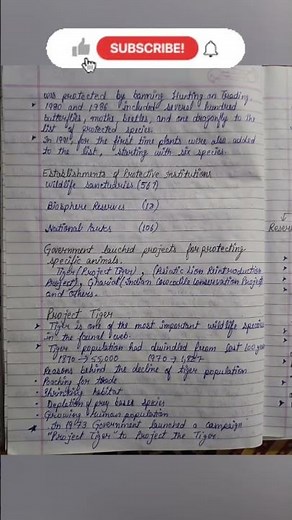 SUBSCRIBE!
was protected by banning Hunting on Trading.
1980 and 1986 included several hundred
butterflies, moths, beetles, and one dragonfly to the
list of protected species.
In 1991, for the first time plants were also added
to the list, starting with six species.
Establishments of Protective institutions
wildlife sanctuaries (567)
Biosphere Reserves (18)
National Parks (106)
Reser
Government lauched projects for protecting
specific animals.
Tiger (Project Tiger), (Asiatic Lion Reintroduction
Project), Gharial (Indian Crocodile Conservation Project)
and others.
Project Tiger
Tiger is one of the most important wildlife species
in the faunal web.
Tiger population had dwindled from last 100 year
1970 → 1,827
Reasons behind the decline of tiger population
Poaching for trade
Shrinking habitat
Depletion of prey base species
Growing Human population
In 1973 Government launched a campaign
"Project Tiger" to Project The Tiger